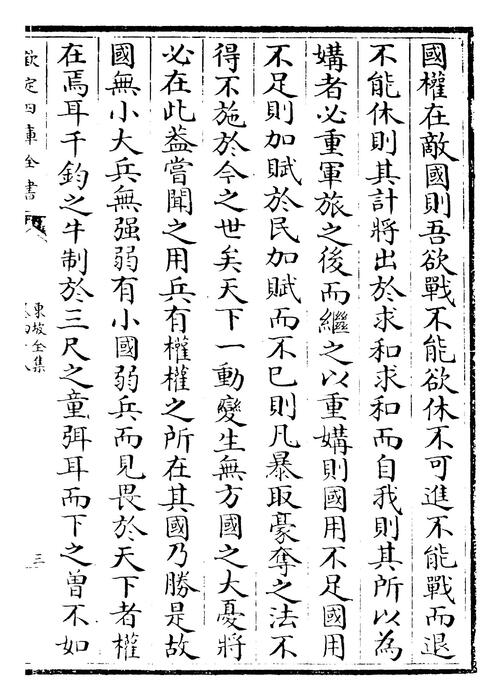 國權在敵國則吾欲戰不能欲休不可進不能戰而退
不能休則其計將出於求和求和而自我則其所以為
媾者必重軍旅之後而繼之以重媾則國用不足國用
不足則加賦於民加賦而不已則凡暴取豪奪之法不
得不施於今之世矣天下一動變生無方國之大憂將
必在此葢嘗聞之用兵有權權之所在其國乃勝是故
國無小大兵無强弱有小國弱兵而見畏於天下者權
在焉耳千鈞之牛制於三尺之童弭耳而下之曾不如
欽定四庫全書
東坡全集
三